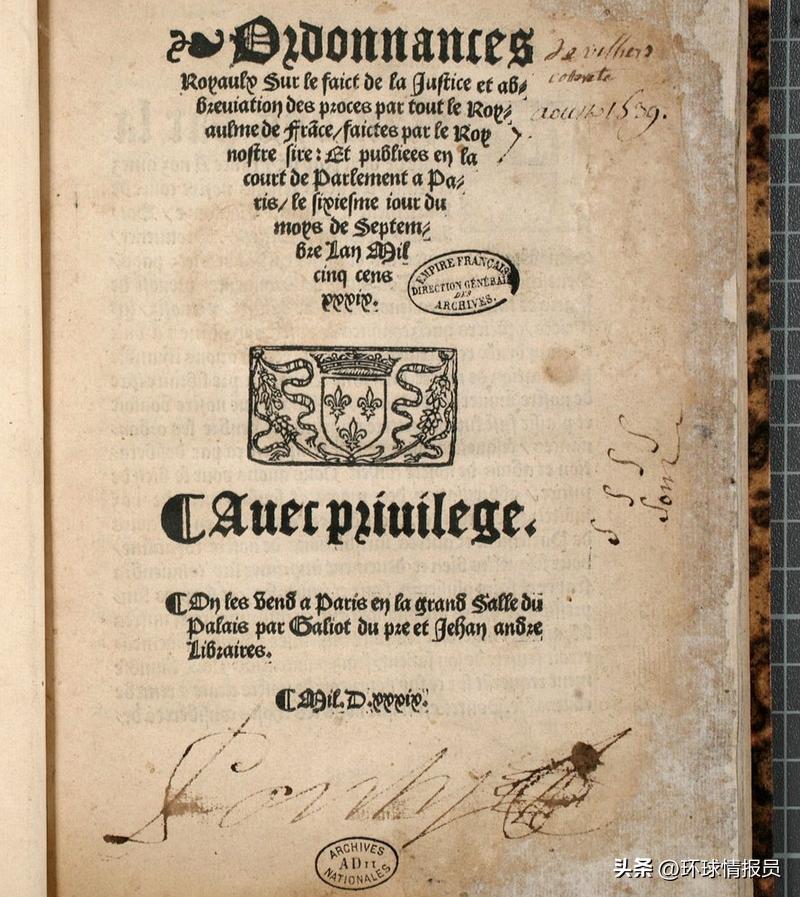 Ordonnances
Royaulx Sur le faict de la Justice et ab⸗
breuiation des proces par tout le Roy⸗
aulme de Frãce/faictes par le Roy
nostre sire: Et publiees en la
court de Parlement a Pa⸗
ris/ le sixiesme iour du
moys de Septem⸗
bre Lan Mil
cinq cens
xxxix.
de villers
coterets
aoust 1539.
EMPIRE FRANÇAIS
DIRECTION GÉNÉRALE
DES
ARCHIVES.
¶Auec priuilege.
¶On les Vend a Paris en la grand Salle du
Palais par Galiot du pre et Jehan andre
Libraires.
¶Mil.D.xxxix.
ARCHIVES
AD11
NATIONALES
头条 @环球情报员